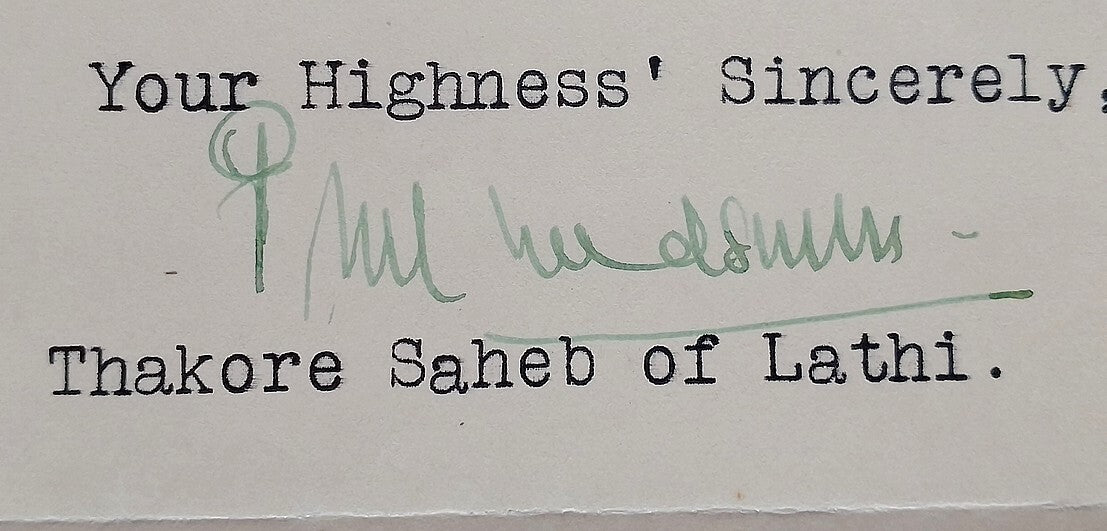 Your Highness' Sincerely,
Thakore Saheb of Lathi.